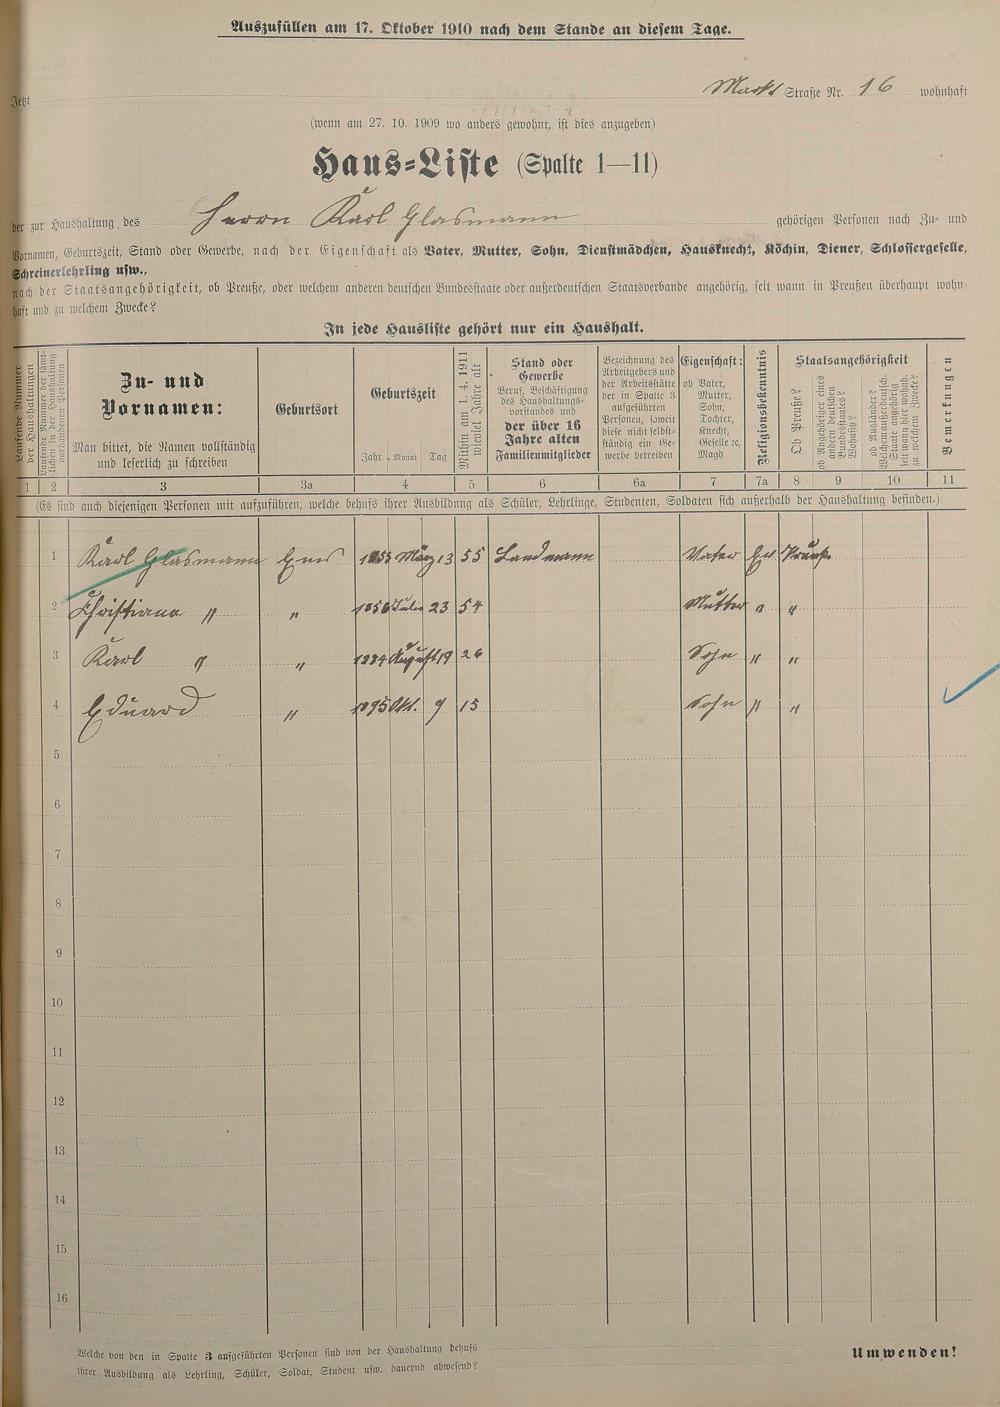 Auszufüllen am 17. Oktober 1910 nach dem Stande an diesem Tage.
Jetzt Markt Straße Nr. 16 wohnhaft
(wenn am 27. 10. 1909 wo anders gewohnt, ist dies anzugeben)
Haus=Liste (Spalte 1—11)
der zur Haushaltung des Herrn Karl Glasmann gehörigen Personen nach Zu- und
Vornamen, Geburtszeit, Stand oder Gewerbe, nach der Eigenschaft als Vater, Mutter, Sohn, Dienstmädchen, Hausknecht, Köchin, Diener, Schlossergeselle,
Schreinerlehrling usw.,
nach der Staatsangehörigkeit, ob Preuße, oder welchem anderen deutschen Bundesstaate oder außerdeutschen Staatsverbande angehörig, seit wann in Preußen überhaupt wohn-
haft und zu welchem Zwecke?
In jede Hausliste gehört nur ein Haushalt.
Laufende Nummer der Haushaltungen
Laufende Nummer der sämt- lichen in der Haushaltung vorhandenen Personen
Zu- und
Vornamen:
Man bittet, die Namen vollständig
und leserlich zu schreiben
Geburtsort
Geburtszeit
Jahr Monat Tag
Mithin am 1. 4. 1911 wieviel Jahre alt
Stand oder
Gewerbe
Beruf, Beschäftigung
des Haushaltungs-
vorstandes und
der über 16
Jahre alten
Familienmitglieder
Bezeichnung des
Arbeitgebers und
der Arbeitsstätte
der in Spalte 3
aufgeführten
Personen, soweit
diese nicht selbst-
ständig ein Ge-
werbe betreiben
Eigenschaft:
ob Vater,
Mutter,
Sohn,
Tochter,
Knecht,
Geselle ꝛc,
Magd
Religionsbekenntnis
Staatsangehörigkeit
Ob Preuße?
ob Angehöriger eines andern deutschen Bundesstaates? Wohnitz?
ob Ausländer? Welchem außerdeutsch. Staate angehörig seit wann hier wohnh. zu welchem Zwecke?
Bemerkungen
1 2 3 3a 4 5 6 6a 7 7a 8 9 10 11
(Es sind auch diejenigen Personen mit aufzuführen, welche behufs ihrer Ausbildung als Schüler, Lehrlinge, Studenten, Soldaten sich außerhalb der Haushaltung befinden.)
1 Karl Glasmann Ems 1855 März 13 55 Landmann Vater Ev Preuße
2 Christiane " " 1856 Julie 23 54 Mutter " "
3 Karl " " 1884 August 19 26 Sohn " "
4 Eduard " 1895 Okt. 9 15 Sohn " "
5
6
7
8
9
10
11
12
13
14
15
16
Welche von den in Spalte 3 aufgeführten Personen sind von der Haushaltung behufs
ihrer Ausbildung als Lehrling, Schüler, Soldat, Student usw. dauernd abwesend?
Umwenden!